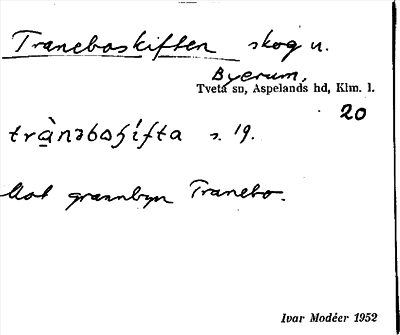 Traneboskiften skog u.
Byerum,
Tveta sn, Aspelands hd, Klm. l.
20
trä̀nəboʃífta s. 19.
Mot grannbyn Tranebo.
Ivar Modéer 1952